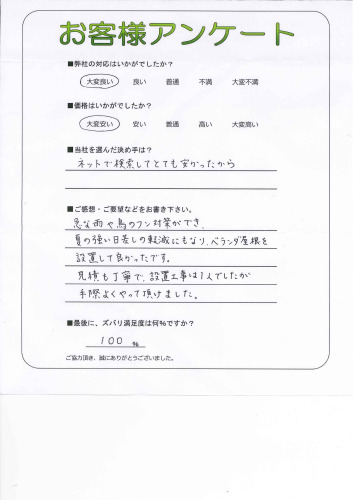 お客様アンケート
■弊社の対応はいかがでしたか?
大変良い 良い 普通 不満 大変不満
■価格はいかがでしたか?
大変安い 安い 普通 高い 大変高い
■当社を選んだ決め手は?
ネットで検索してとても安かったから
■ご感想・ご要望などをお書き下さい。
急な雨や鳥のフン対策ができ、
夏の強い日差しの軽減にもなり、ベランダ屋根を
設置して良かったです。
見積も丁寧で、設置工事は1人でしたが
手際よくやって頂けました。
■最後に、ズバリ満足度は何%ですか?
100 %
ご協力頂き、誠にありがとうございました。